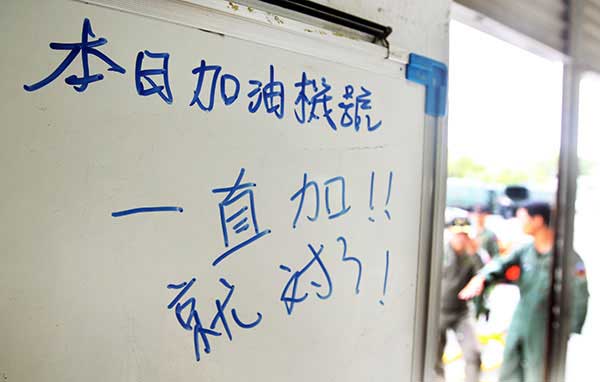 本日加油機號
一直加!!
就对了!